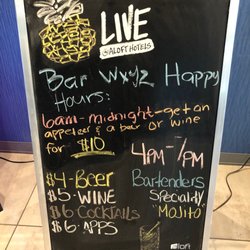 LIVE
@ALOFT HOTELS
Bar Wxyz Happy
Hours:
6am-midnight-get an
appetizer & a beer or wine
for $10
4PM-7PM
$4-Beer
$5-WINE
$6 COCKTAILS
$6-APPS
Bartenders
Specialty
"MOJITO"
aloft